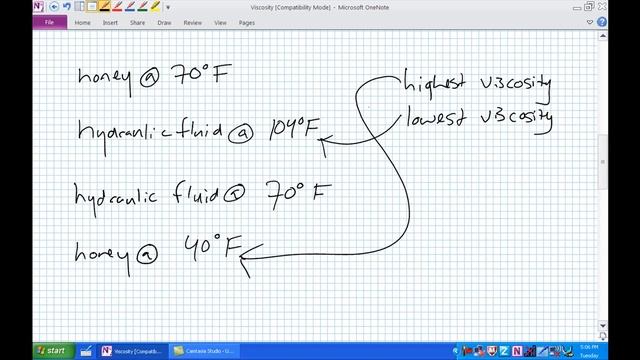 Viscosity [Compatibility Mode] - Microsoft OneNote
File Home Insert Share Draw Review View
honey @ 70°F
highest viscosity
hydraulic fluid @ 104°F
lowest viscosity
hydraulic fluid @ 70°F
honey @ 40°F
start
Viscosity [Compatib...
Camtasia Studio - U...
5:06 PM
Tuesday